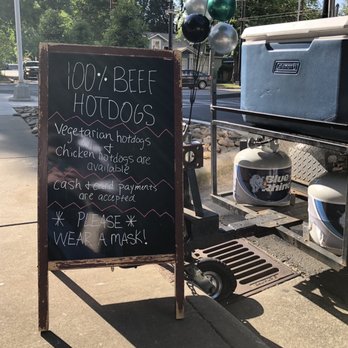 100% BEEF
HOTDOGS
Vegetarian hotdogs
&
Chicken hotdogs are
available
cash & card payments
are accepted
* PLEASE *
WEAR A MASK!
Coleman
Blue
Rhino